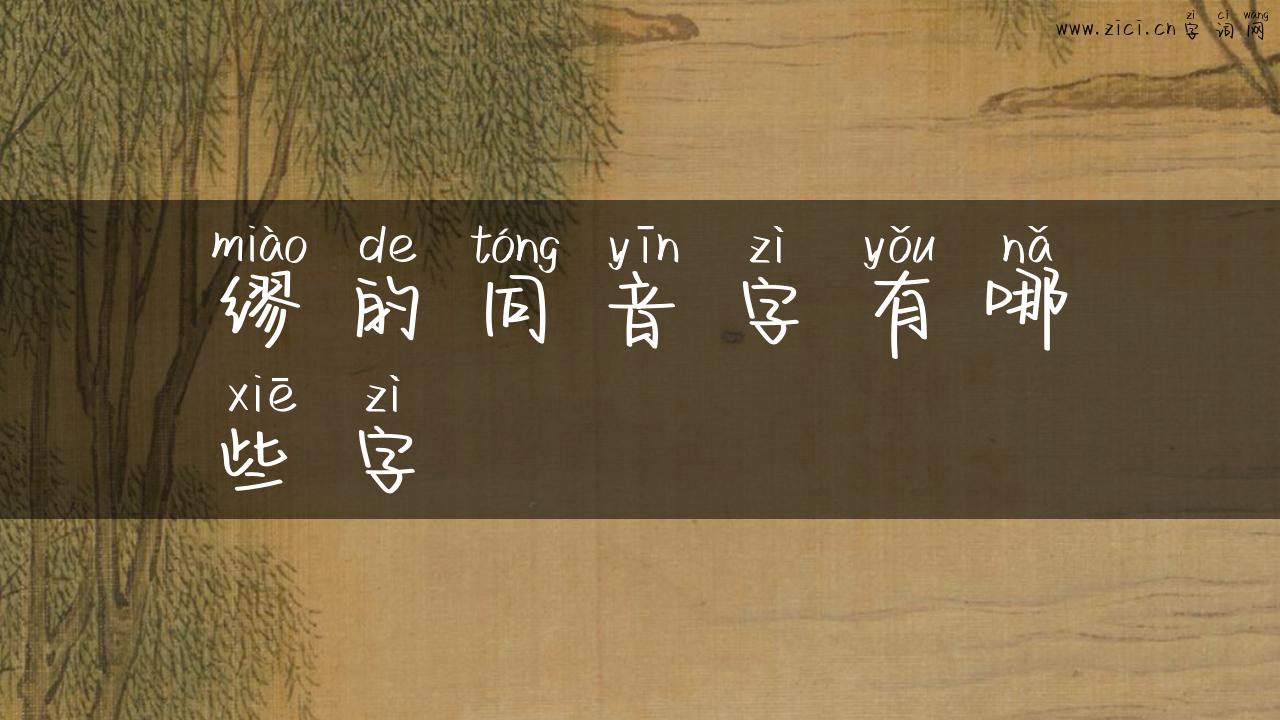 zì cí wǎng
www.zici.cn 字词网
miào de tóng yīn zì yǒu nǎ
缪的同音字有哪
xiē zì
些字